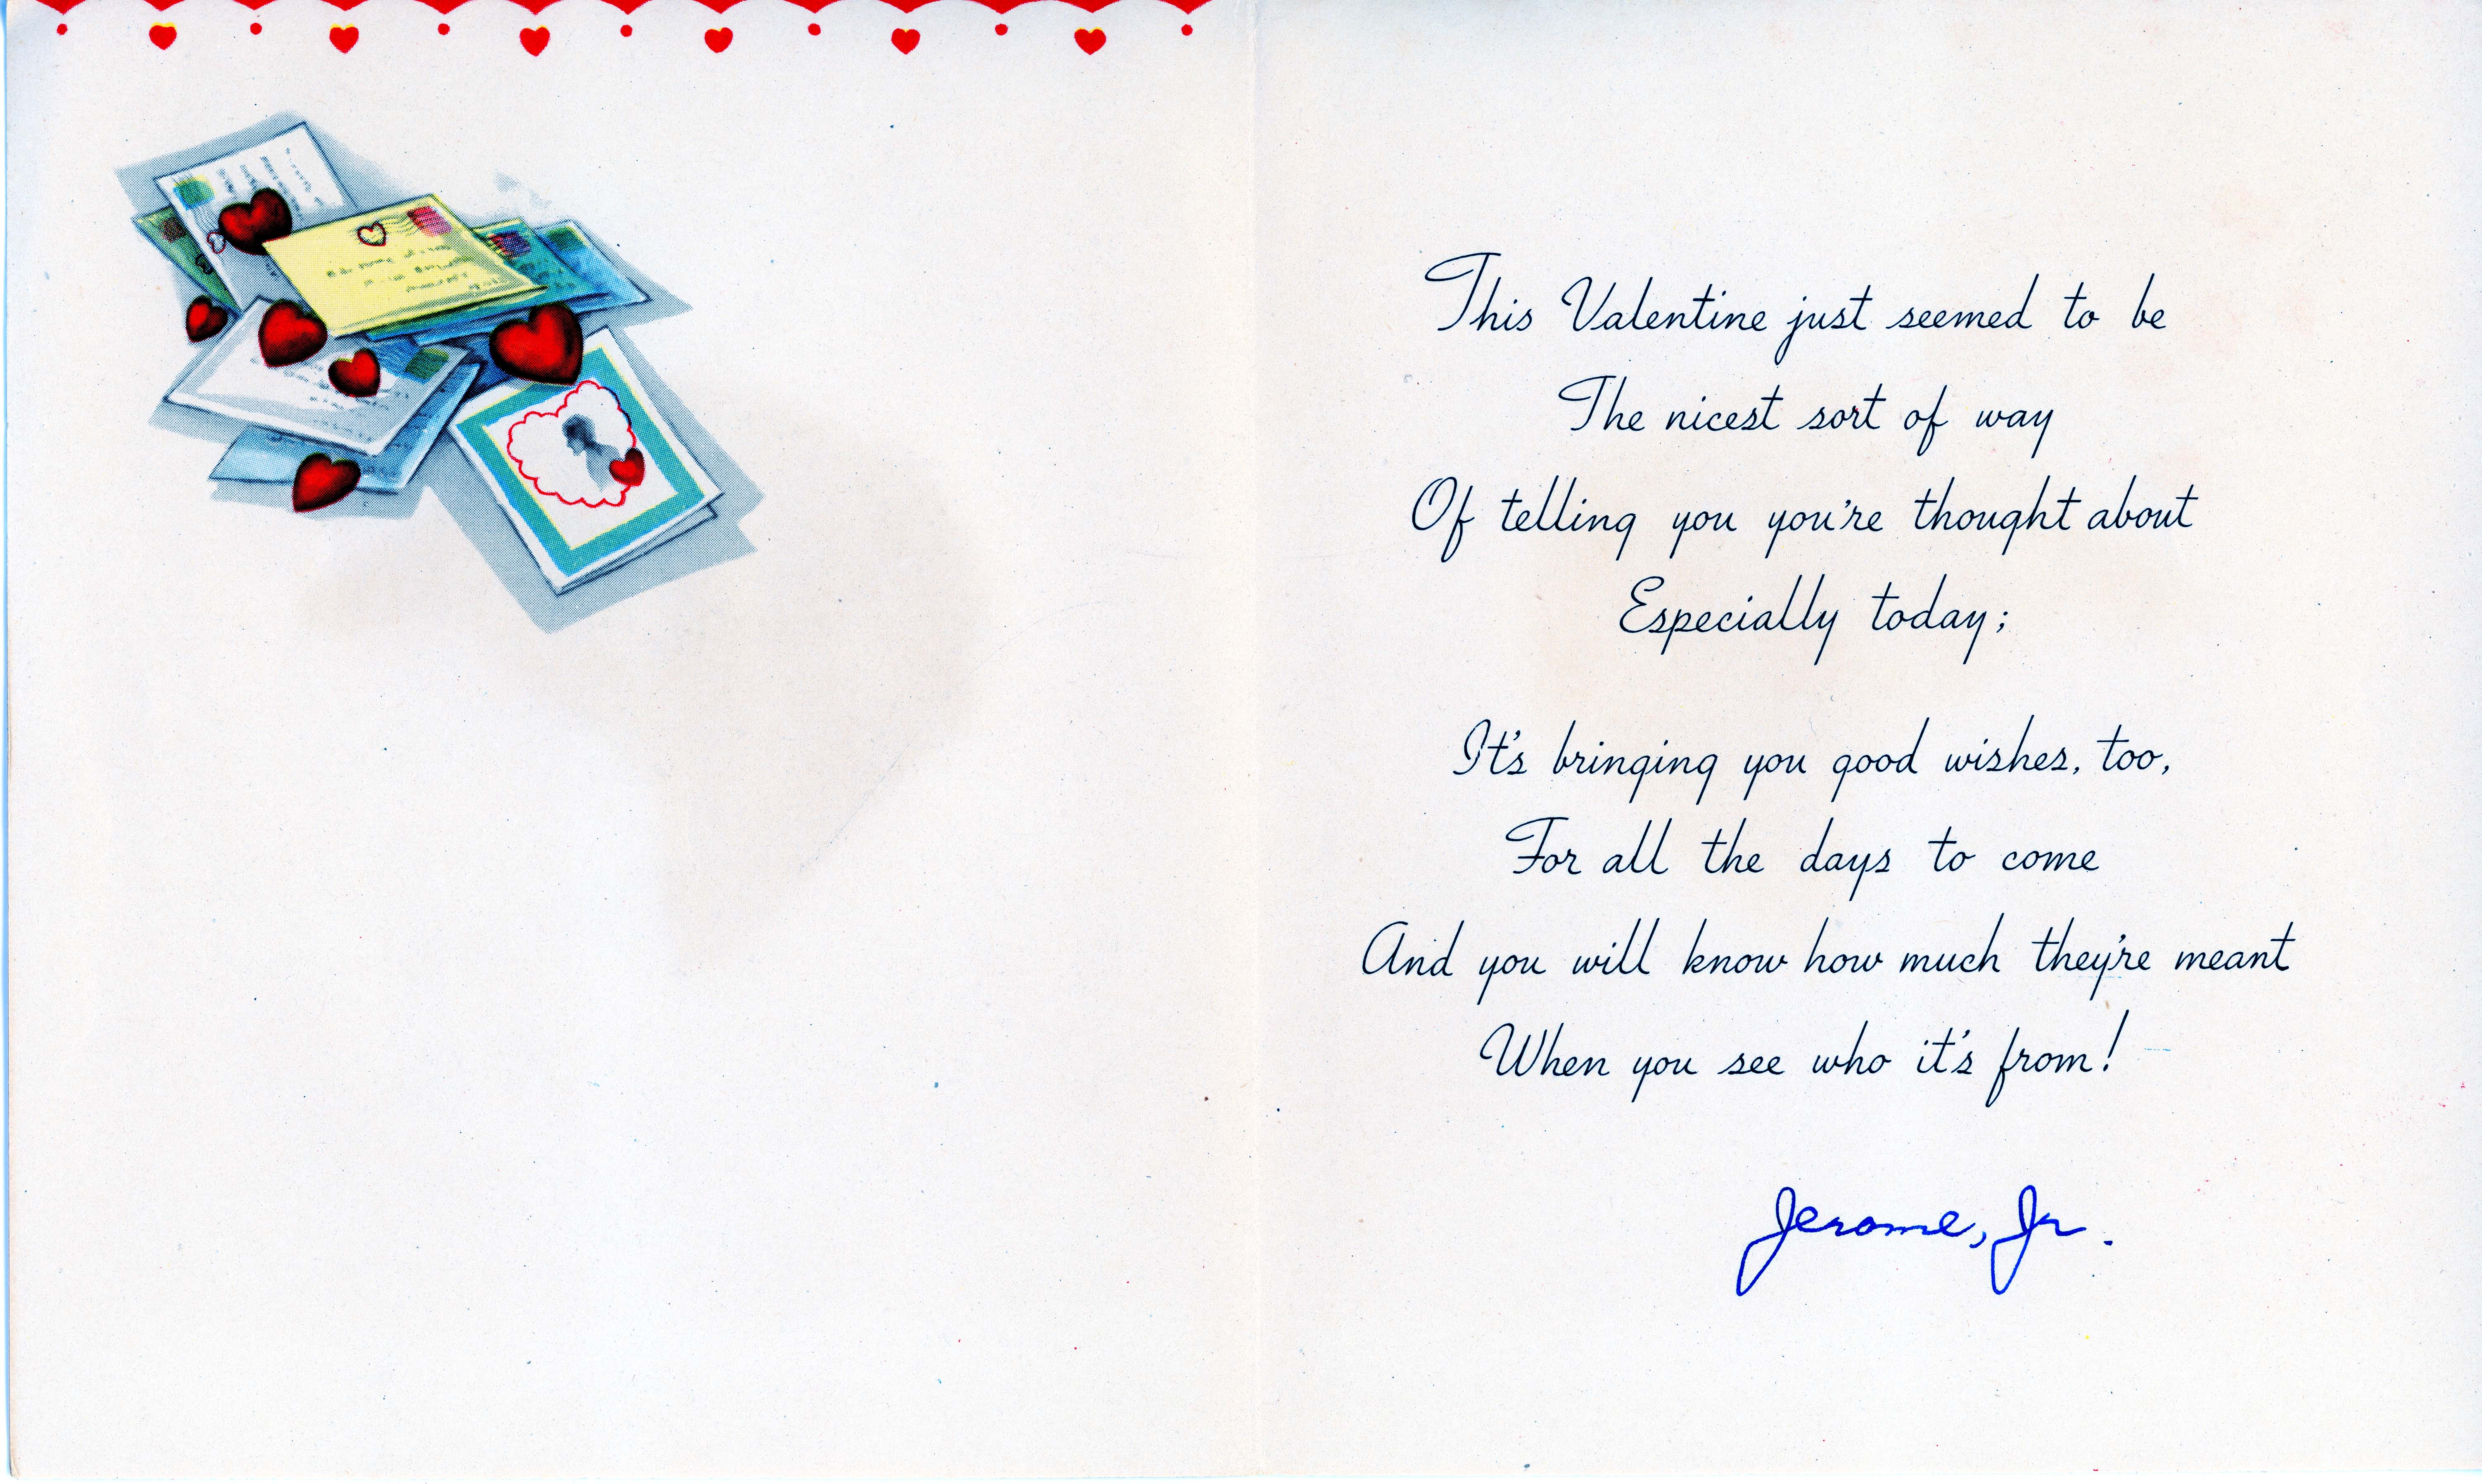 This Valentine just seemed to be
The nicest sort of way
Of telling you you're thought about
Especially today;
It's bringing you good wishes, too,
For all the days to come
And you will know how much they're meant
When you see who it's from!
Jerome, Jr.